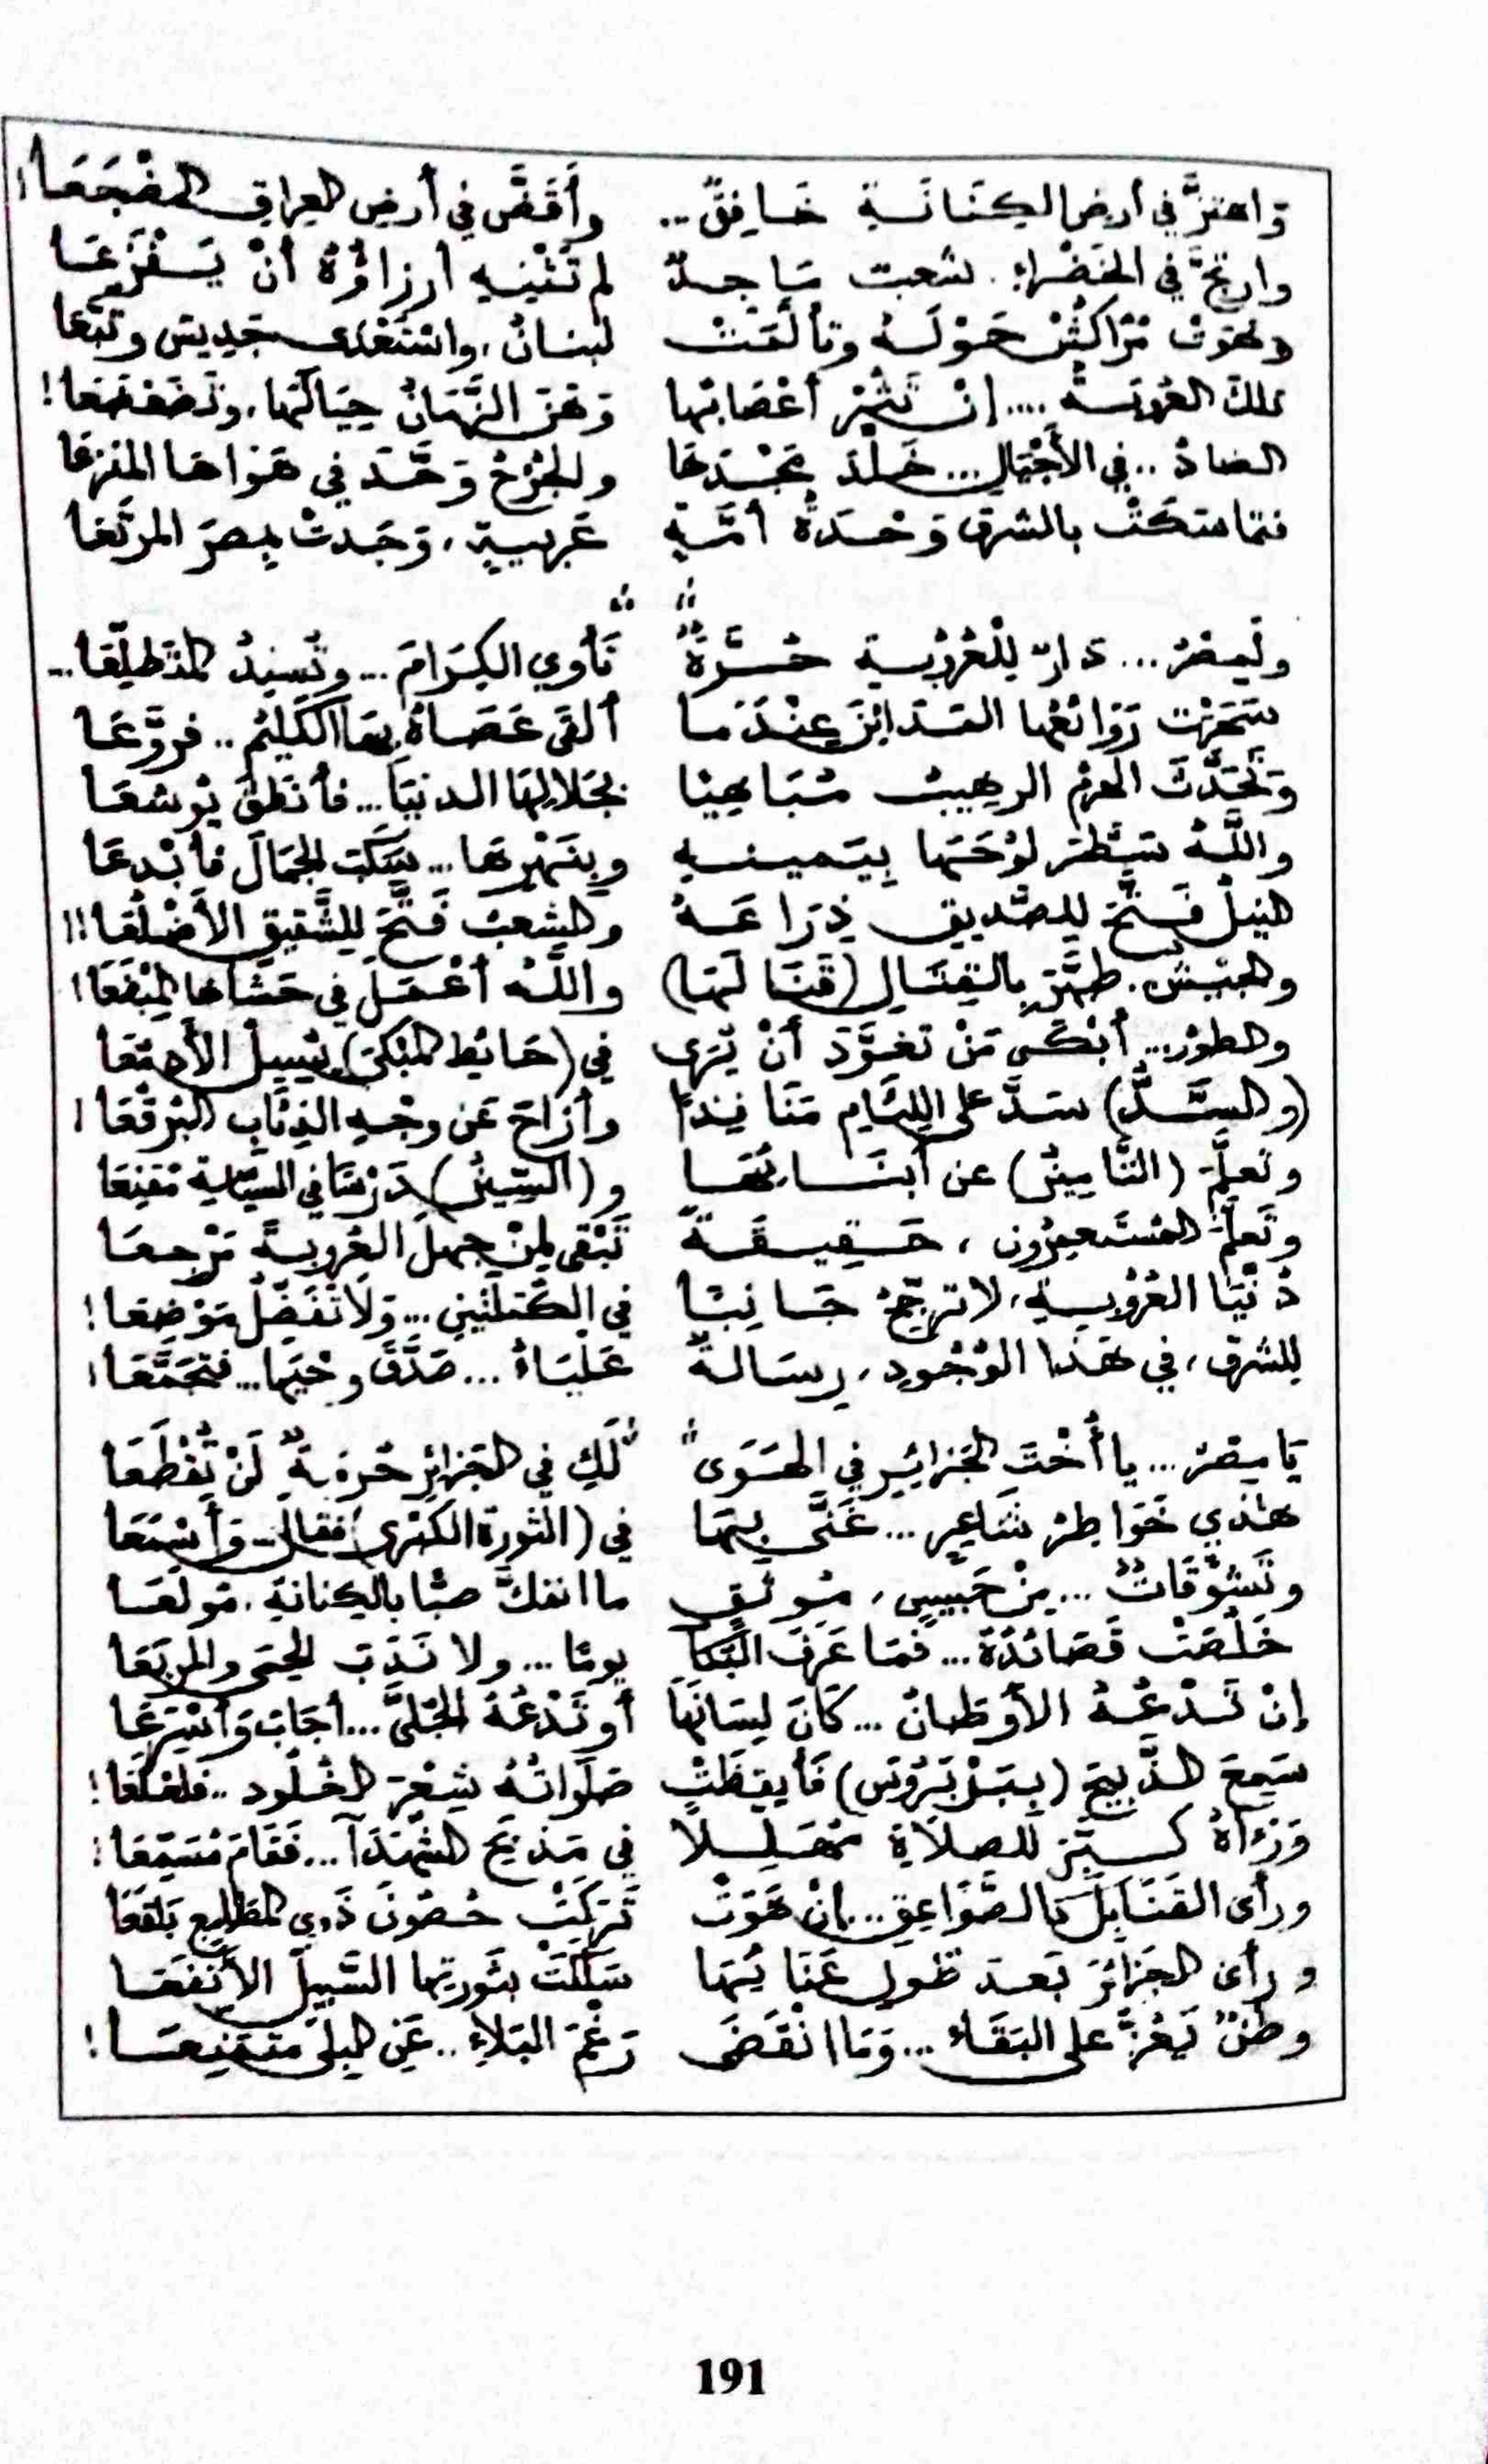 وَاهتزَّ في أرضِ الكِنَانَةِ خَافِقٌ .. وأَقَضَّ في أرضِ العِراقِ المضْجَعَا!
وارتجَّ في الخَضْراءِ شعبٌ مَاجِدٌ لم تَثْنِهِ أرزاؤُهُ أنْ يَفْزَعَا
وهَوَتْ مُرّاكُشْ حَوْلَهُ وتألَّمَتْ لبنانُ، واسْتَعْدَى جَدِيسَ وتُبَّعَا
تلكَ العُرُوبَةُ .... إنْ تَثُرْ أعْصَابُهَا وَهَنَ الزَّمَانُ حِيَالَهَا، وتَضَعْضَعَا!
الضادُ .. في الأَجْيَالِ ... خَلَّدَ مَجْدَهَا والجُرْحُ وَحَّدَ في هَوَاهَا المنْزِعَا
فتمَاسَكَتْ بالشرقِ وَحْدَةُ أمَّةٍ عَرَبِيةٍ، وَجَدتْ بِمِصرَ المرْتَعَا
ولِمِصْرَ ... دَارٌ لِلْعُرُوبةِ حُرَّةٌ تَأوِي الكِرَامَ ... وتُسنِدُ المتَطلِّعَا ...
سَحَرَتْ رَوَائعُها المدَائِنَ عِنْدَمَا ألقَى عَصَاهُ بِهَا الكَلِيْمُ .. فروَّعَا
وَتَحَدَّثَ الهَرَمُ الرهِيبُ مُبَاهِيًا بجَلالِهَا الدنيَا ... فأنطَقَ يُوشَعَا
واللَّهُ سَطَّرَ لوْحَهَا بِيَمينهِ وبِنَهْرِهَا ... سَكَبَ الجَمَالَ فأبْدعَا
النيلُ فَتَّحَ للصَّديقِ ذِرَاعَهُ والشعبُ فَتَّحَ لِلشَّقِيقِ الأَضْلُعَا!!
والجَيْشُ. طهَّرَ بالقِتَالِ (قَنَالَهَا) واللَّهُ أعْمَلَ في حَشَاهَا المِبْضَعَا!
والطورُ ... أبْكَى مَنْ تَعَوَّدَ أنْ يُرَى في (حَائِطِ المَبْكَى) يُسِيلُ الأَدْمُعَا
(والسَّدُّ) سَدَّ على اللِّئَامِ مَنَافِذًا وأزَاحَ عَن وجْهِ الذِئَابِ البُرْقُعَا!
وتَعلَّمَ (التَّامِيزُ) عن أبنَائِهَا و(السِّينُ) دَرْسًا في السيَاسةِ مُقنِعَا
وتَعَلَّمَ المُسْتَعمِرُون، حَقِيقَةً تَبْقى لِمنْ جهِلَ العُروبةَ مَرْجِعَا
دُنْيَا العُرُوبةِ، لا ترجِّحُ جَانِبًا في الكُتلَتَينِ ... وَلاَ تُفَضِّلُ مَوْضِعَا!
لِلشرقِ، في هَذا الوُجُودِ، رِسَالةٌ عَلْيَاءُ ... صَدَّقَ وحْيَهَا ... فتَجَمَّعَا!
يَا مِصْرُ ... يا أُخْتَ الجَزائِرِ في الهَوَى لَكِ في الجَزائِرِ حُرْمَةٌ لَنْ تُقْطَعَا
هَذِي خَوَاطِرُ شَاعِرٍ ... غَنَّى بِهَا في (الثورةِ الكُبْرى) فقالَ - وَأَسْمَعَا
وتَشَوُّقَاتٌ ... مِنْ حَبِيسٍ، مُوثَقٍ ما انفكَّ صَبًّا بالكِنانةِ، مُولَعَا
خَلُصَتْ قَصَائدُهُ ... فَمَا عَرَفَ البُكَا يومًا ... ولا نَدَبَ الحِمَى والمرْبَعَا
إنْ تَدْعُهُ الأوطَانُ ... كَانَ لِسَانَهَا أو تَدْعُهُ الجُلَّى ... أجَابَ وَأسْرَعَا
سَمِعَ الذَّبِيحَ (بِبَرْبَرُوسَ) فأَيقظَتْ صَلَوَاتُهُ شِعْرَ الخُلُودِ .. فَلَعْلَعَا!
وَرَآهُ كَبَّرَ للصلاَةِ مُهَلِّلاً في مَذبَحِ الشُّهَدَا ... فَقَامَ مُسَمِّعَا!
ورأى القَنَابِلَ كالصَّوَاعِقِ .. إنْ هَوَتْ تَرَكَتْ حُصُونَ ذَوِي المطَامِعِ بَلْقَعَا
ورأى الجَزائرَ بَعدَ طُولِ عَنَائِهَا سَلَكَتْ بثَورتِهَا السَّبِيلَ الأَنْفَعَا
وطنٌ يَعُزُّ على البَقَاءِ ... وَمَا انْقَضَى رَغْمَ البَلاءِ .. عَنِ البِلَى مُتَمَنِّعَا!
191